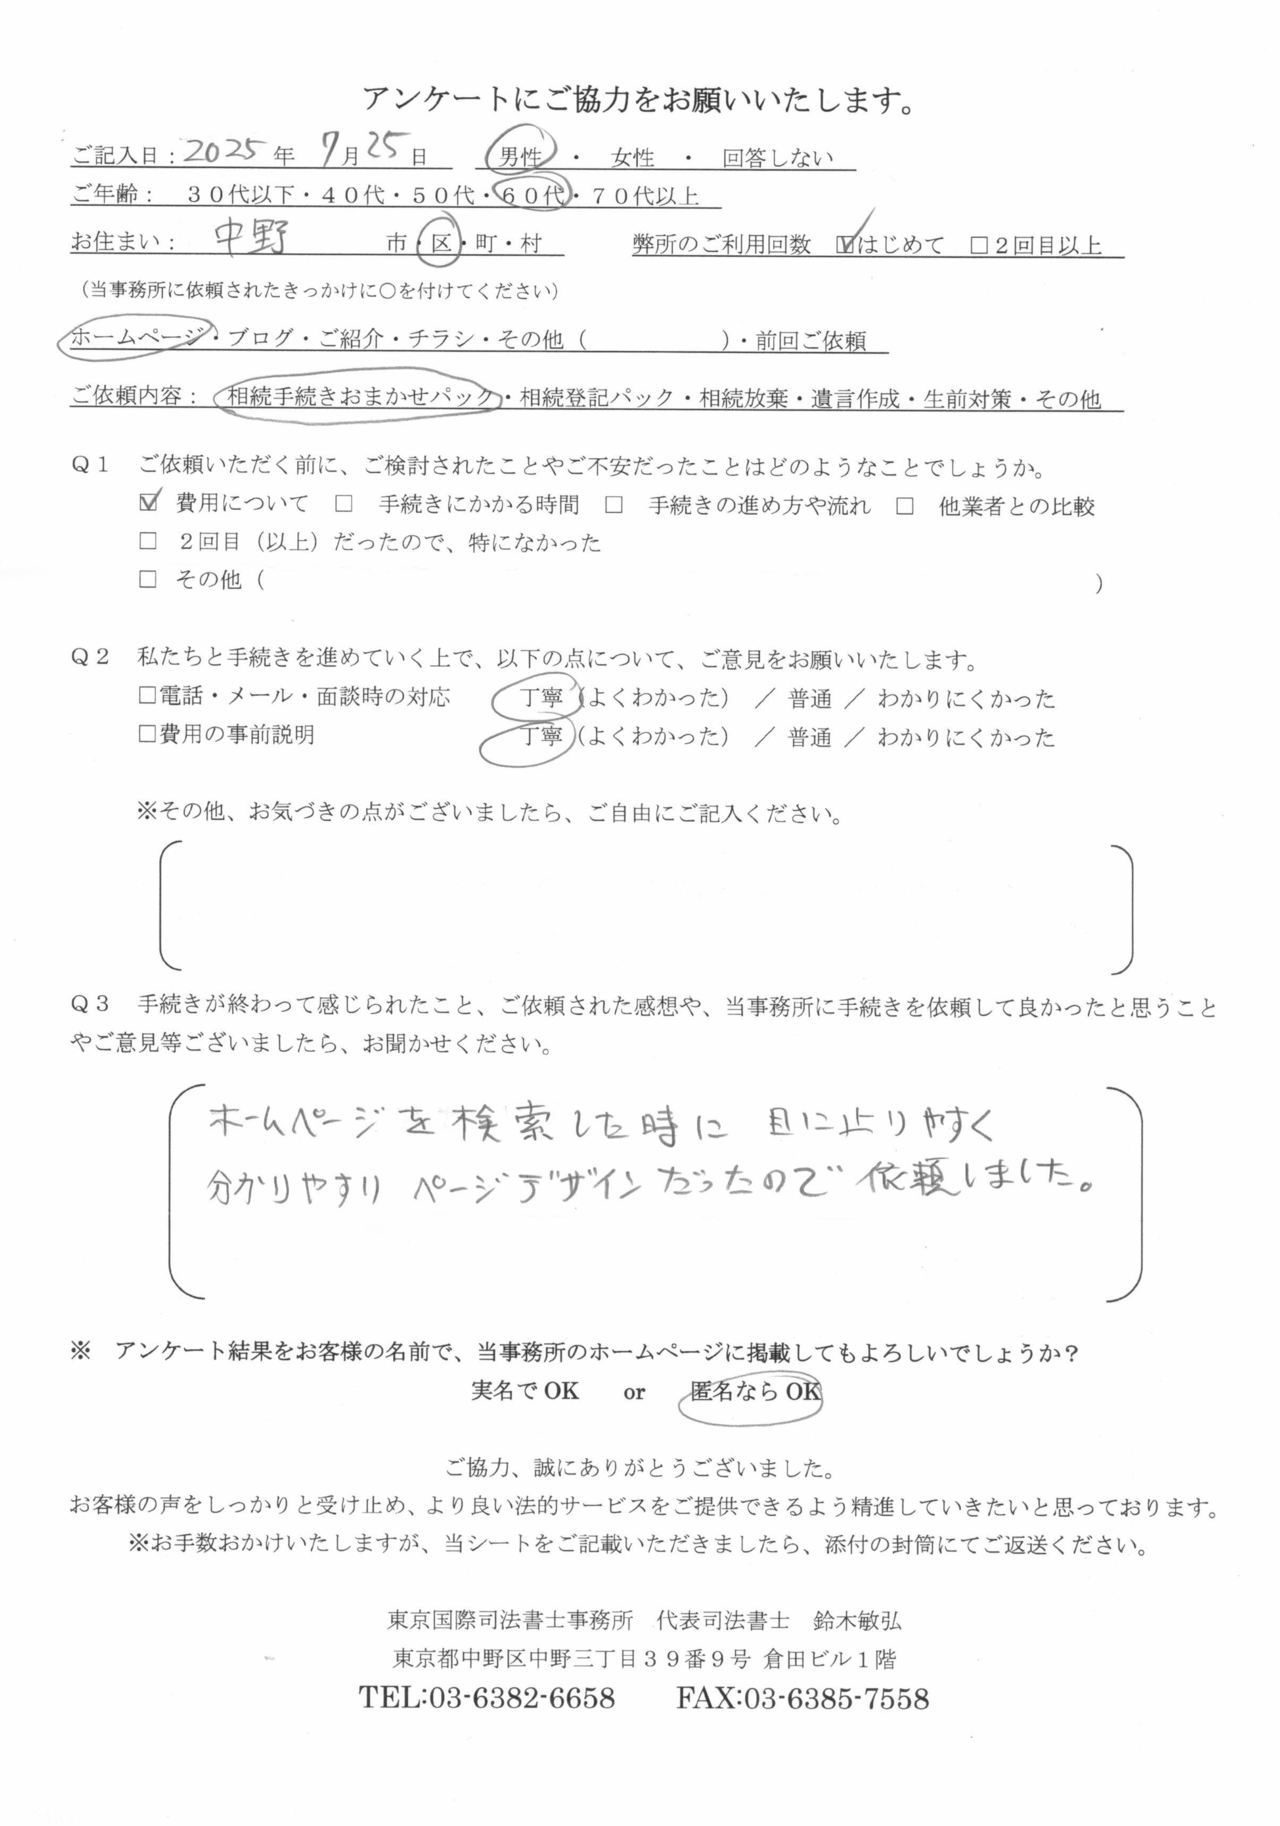 アンケートにご協力をお願いいたします。
ご記入日：2025年 7月25日 男性 ・ 女性 ・ 回答しない
ご年齢： ３０代以下・４０代・５０代・６０代・７０代以上
お住まい： 中野 市・区・町・村 弊所のご利用回数 ☑はじめて □２回目以上
（当事務所に依頼されたきっかけに〇を付けてください）
ホームページ・ブログ・ご紹介・チラシ・その他（ ）・前回ご依頼
ご依頼内容： 相続手続きおまかせパック・相続登記パック・相続放棄・遺言作成・生前対策・その他
Ｑ１ ご依頼いただく前に、ご検討されたことやご不安だったことはどのようなことでしょうか。
☑ 費用について □ 手続きにかかる時間 □ 手続きの進め方や流れ □ 他業者との比較
□ ２回目（以上）だったので、特になかった
□ その他（ ）
Ｑ２ 私たちと手続きを進めていく上で、以下の点について、ご意見をお願いいたします。
□電話・メール・面談時の対応 丁寧（よくわかった） ／ 普通 ／ わかりにくかった
□費用の事前説明 丁寧（よくわかった） ／ 普通 ／ わかりにくかった
※その他、お気づきの点がございましたら、ご自由にご記入ください。
Ｑ３ 手続きが終わって感じられたこと、ご依頼された感想や、当事務所に手続きを依頼して良かったと思うこと
やご意見等ございましたら、お聞かせください。
ホームページを検索した時に 目に止りやすく
分かりやすい ページデザインだったので依頼しました。
※ アンケート結果をお客様の名前で、当事務所のホームページに掲載してもよろしいでしょうか？
実名でOK or 匿名ならOK
ご協力、誠にありがとうございました。
お客様の声をしっかりと受け止め、より良い法的サービスをご提供できるよう精進していきたいと思っております。
※お手数おかけいたしますが、当シートをご記載いただきましたら、添付の封筒にてご返送ください。
東京国際司法書士事務所 代表司法書士 鈴木敏弘
東京都中野区中野三丁目３９番９号 倉田ビル１階
TEL:03-6382-6658 FAX:03-6385-7558